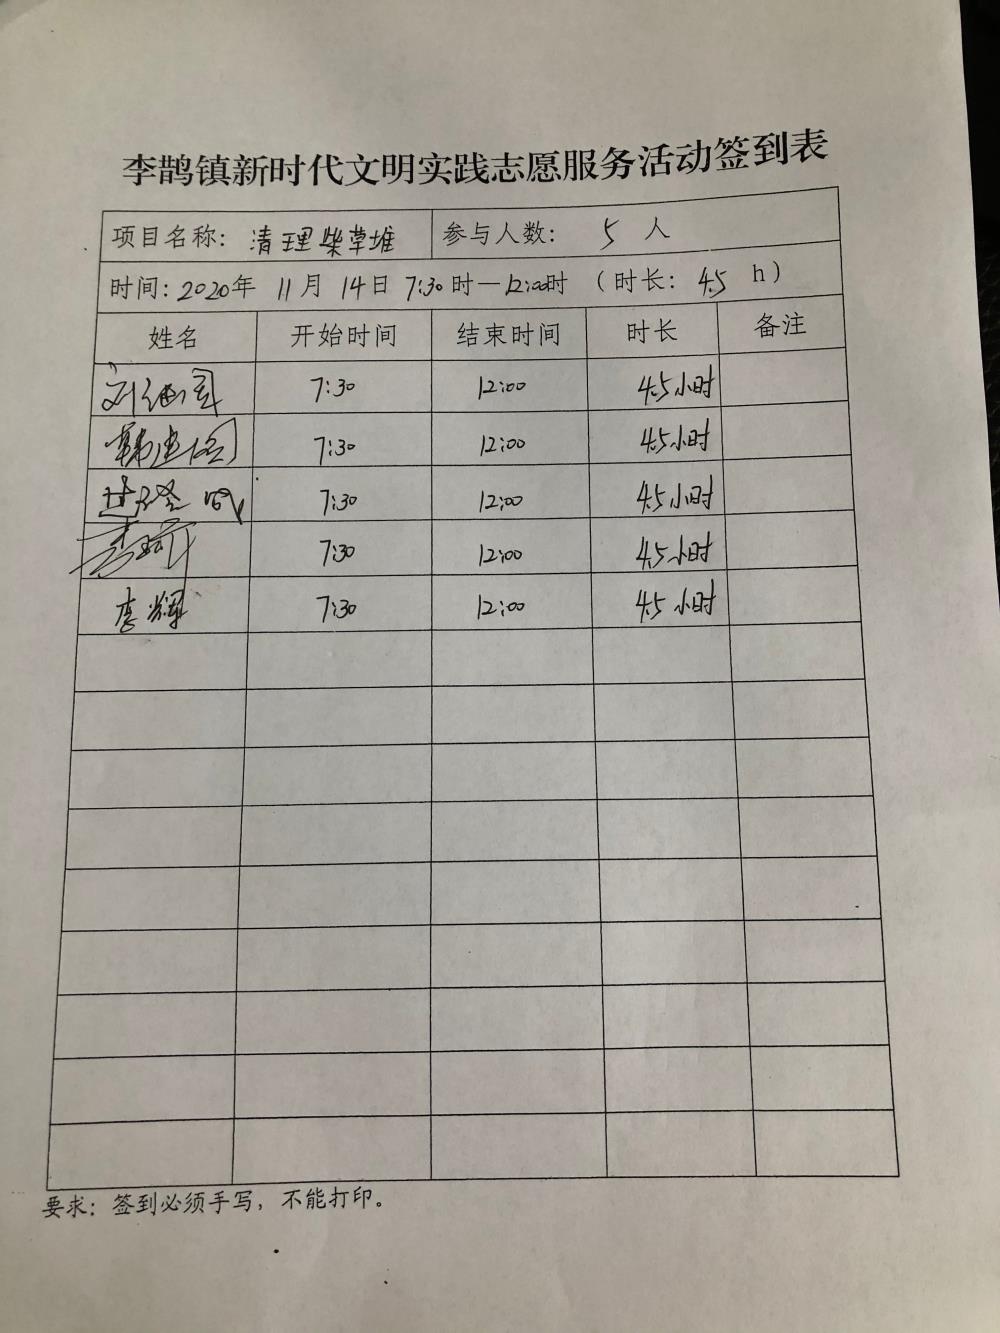 李鹊镇新时代文明实践志愿服务活动签到表
项目名称：清理柴草堆 参与人数：5人
时间：2020年 11月 14日 7:30时—12:00时 （时长：4.5 h）
姓名 开始时间 结束时间 时长 备注
7:30 12:00 4.5小时
韩建 7:30 12:00 4.5小时
7:30 12:00 4.5小时
7:30 12:00 4.5小时
李辉 7:30 12:00 4.5小时
要求：签到必须手写，不能打印。